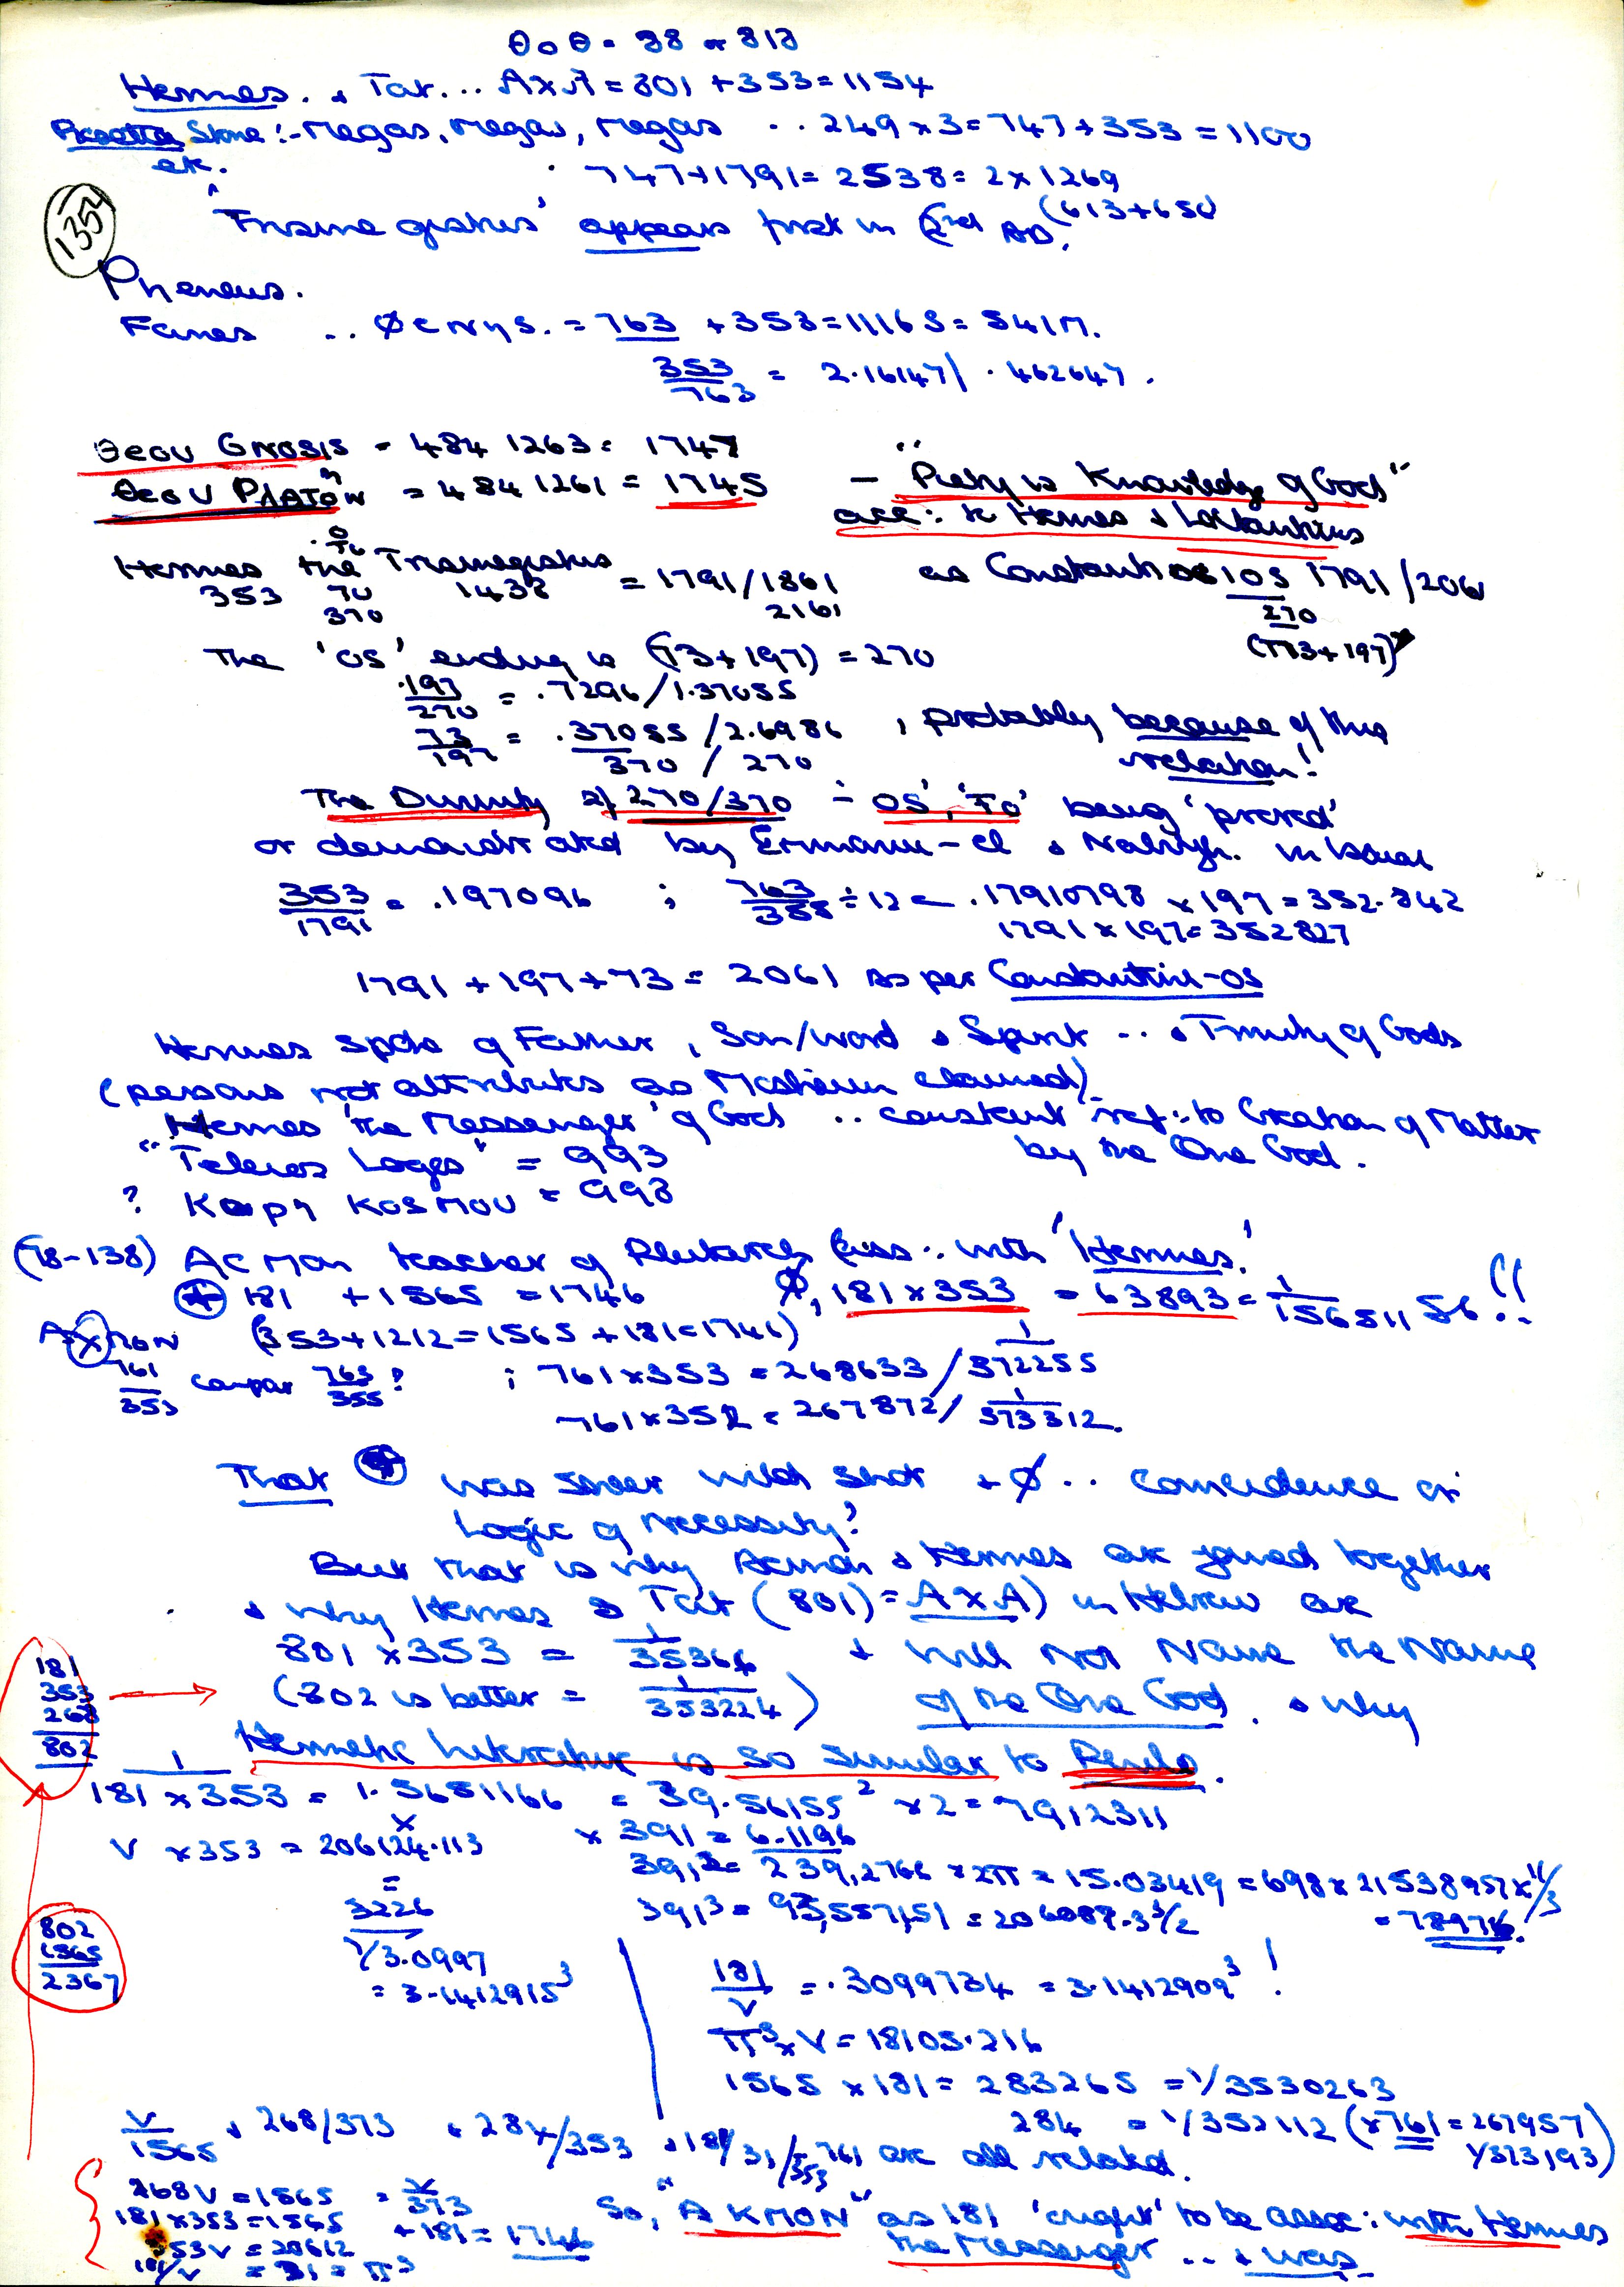 θοθ = 88 or 818
Hermes. & Tat... AxA = 801 + 353 = 1154
Rosetta Stone :- Megas, Megas, Megas .. 249 x 3 = 747 + 353 = 1100
etc. 747 + 1791 = 2538 = 2 x 1269
(613 + 656)
'Trismegistus' appears first in 2nd AD.
1354
Pheneus.
Fanes .. ØENYS. = 763 + 353 = 1116S = 541M.
353/763 = 2.16147 / .462647.
θεου Gnosis = 484 1263 = 1747
θεου PΛATωN = 484 1261 = 1745 — "Piety is Knowledge of God"
acc: to Hermes & Lactantius
Hermes the Trismegistus = 1791/1861 as Constantinos 1791/2061
353 70 1438 2161 270
370 (73+197)
The 'OS' ending is (73+197) = 270
197/270 = .7296/1.37055
73/197 = .37055/2.6986, probably because of this
370 / 270 relation!
The Divinity of 270/370 ÷ OS, 'TO' being 'proved'
or demonstrated by Ermanu-el &
353/1791 = .197096 ; 763/355 ÷ 12 = .17910798 x 197 = 352.842
1791 x 197 = 352827
1791 + 197 + 73 = 2061 as per Constantin-os
Hermes spoke of Father, Son/Word & Spirit .. & Trinity of Gods
(persons not attributes as claimed)
Hermes 'the Messenger' of God .. constant ref: to Creation of Matter
by the One God.
"Teleios Logos" = 993
? Kopη Kosmou = 998
(78-138) Acmon teacher of Plutarch .. with 'Hermes.'
+ 181 + 1565 = 1746 Ø, 181 x 353 = 63893 = 1/156511 56 !!
AXMON (353 + 1212 = 1565 + 181 = 1746)
761/353 compare 763/355? ; 761 x 353 = 268633 / 1/372255
761 x 352 = 267872 / 1/373312.
That + was sheer wild shot & Ø .. coincidence or
Logic of Necessity?
But that is why Acmon & Hermes are joined together
& why Hermes & Tat (801) = AXA) in Hebrew are
801 x 353 = 1/35364 & will Not Name the Name
(802 is better = 1/353224) of the One God. & why
181
353
268
802
Hermetic Literature is so similar to
1/181 x 353 = 1.5651166 = 39.56155² x 2 = 7912311
V x 353 = 206124.113 x 391 = 6.1196
391² = 239,2766 x 2π = 15.03419 = 698 x 21538957 x 11/3
= 78976.
= 3226
391³ = 93,557,51 = 206087.3 3/2
1/3.0997
= 3.1412915³
802
1565
2367
181/V = .3099734 = 3.1412909³ !
π³ x V = 18105.216
1565 x 181 = 283265 = 1/3530263
284 = 1/352112 (x 761 = 267957)
1/373193)
V/1565 & 268/373 & 284/353 & 181/31/ 761/353 are all related.
268V = 1565 = V/373
181 x 353 = 1565 + 181 = 1746
353V = 20612
181/V = 31 = π³
So, "AKMON" as 181 'ought' to be assoc: with Hermes
the Messenger .. & was